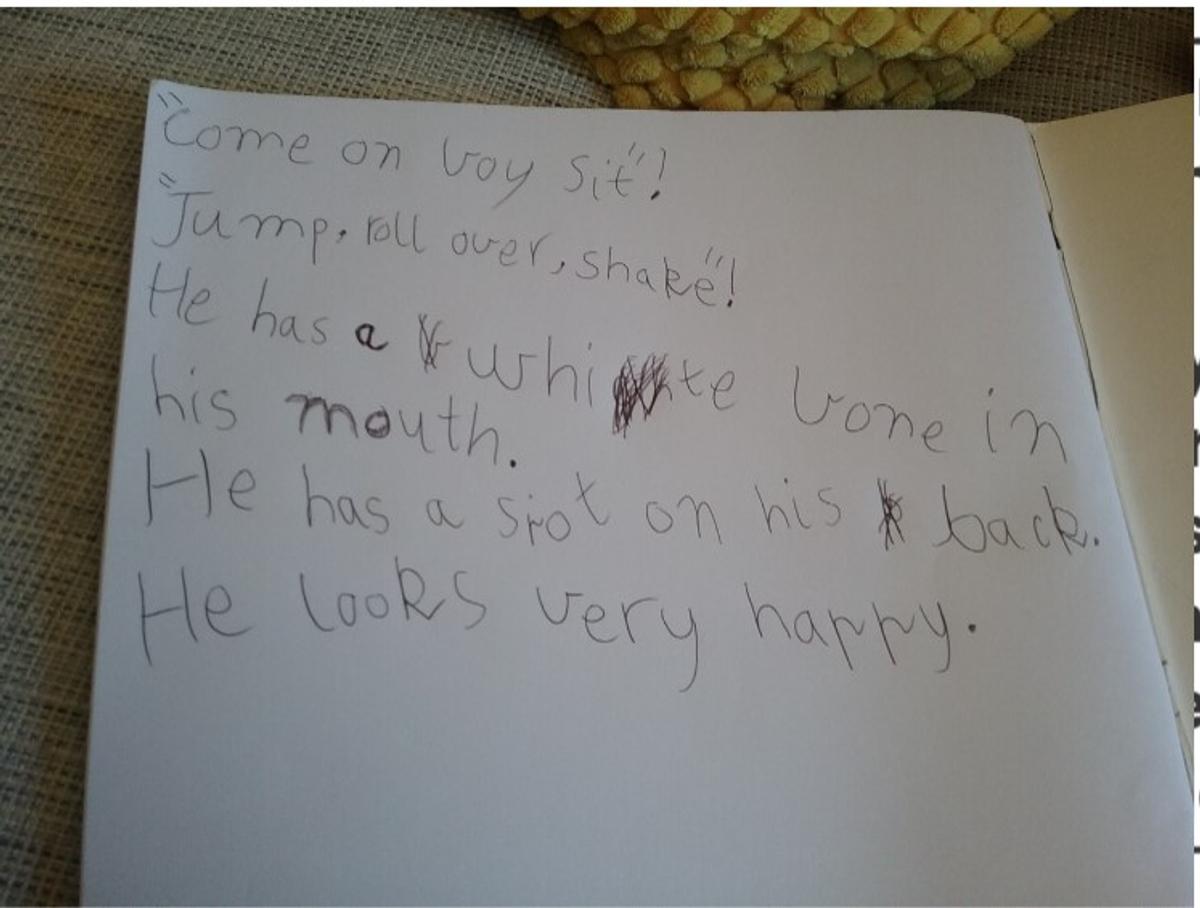 "Come on boy sit"!
"Jump, roll over, shake"!
He has a white bone in
his mouth.
He has a spot on his back.
He looks very happy.